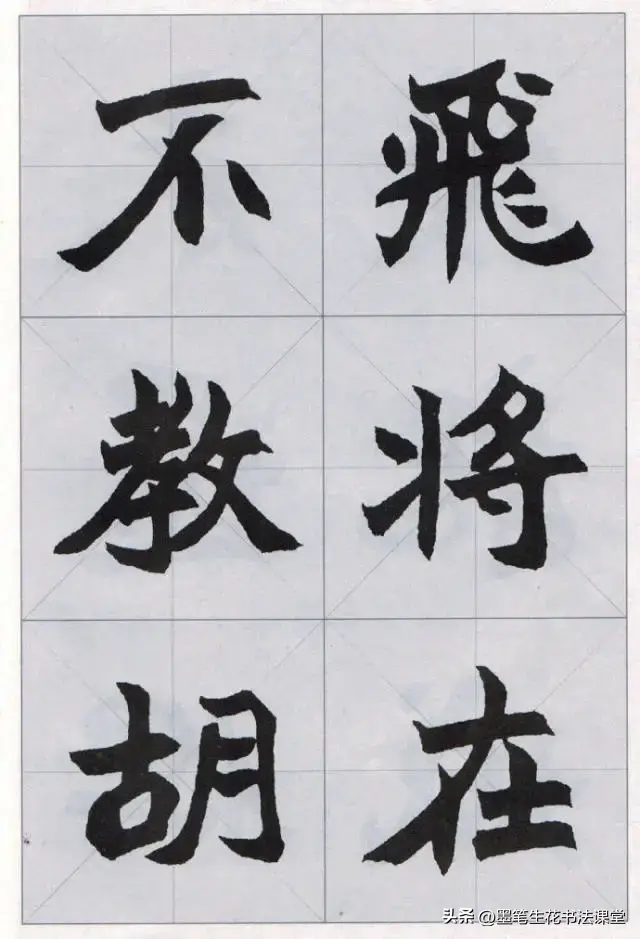 飛将在
不教胡
头条 @墨笔生花书法课堂